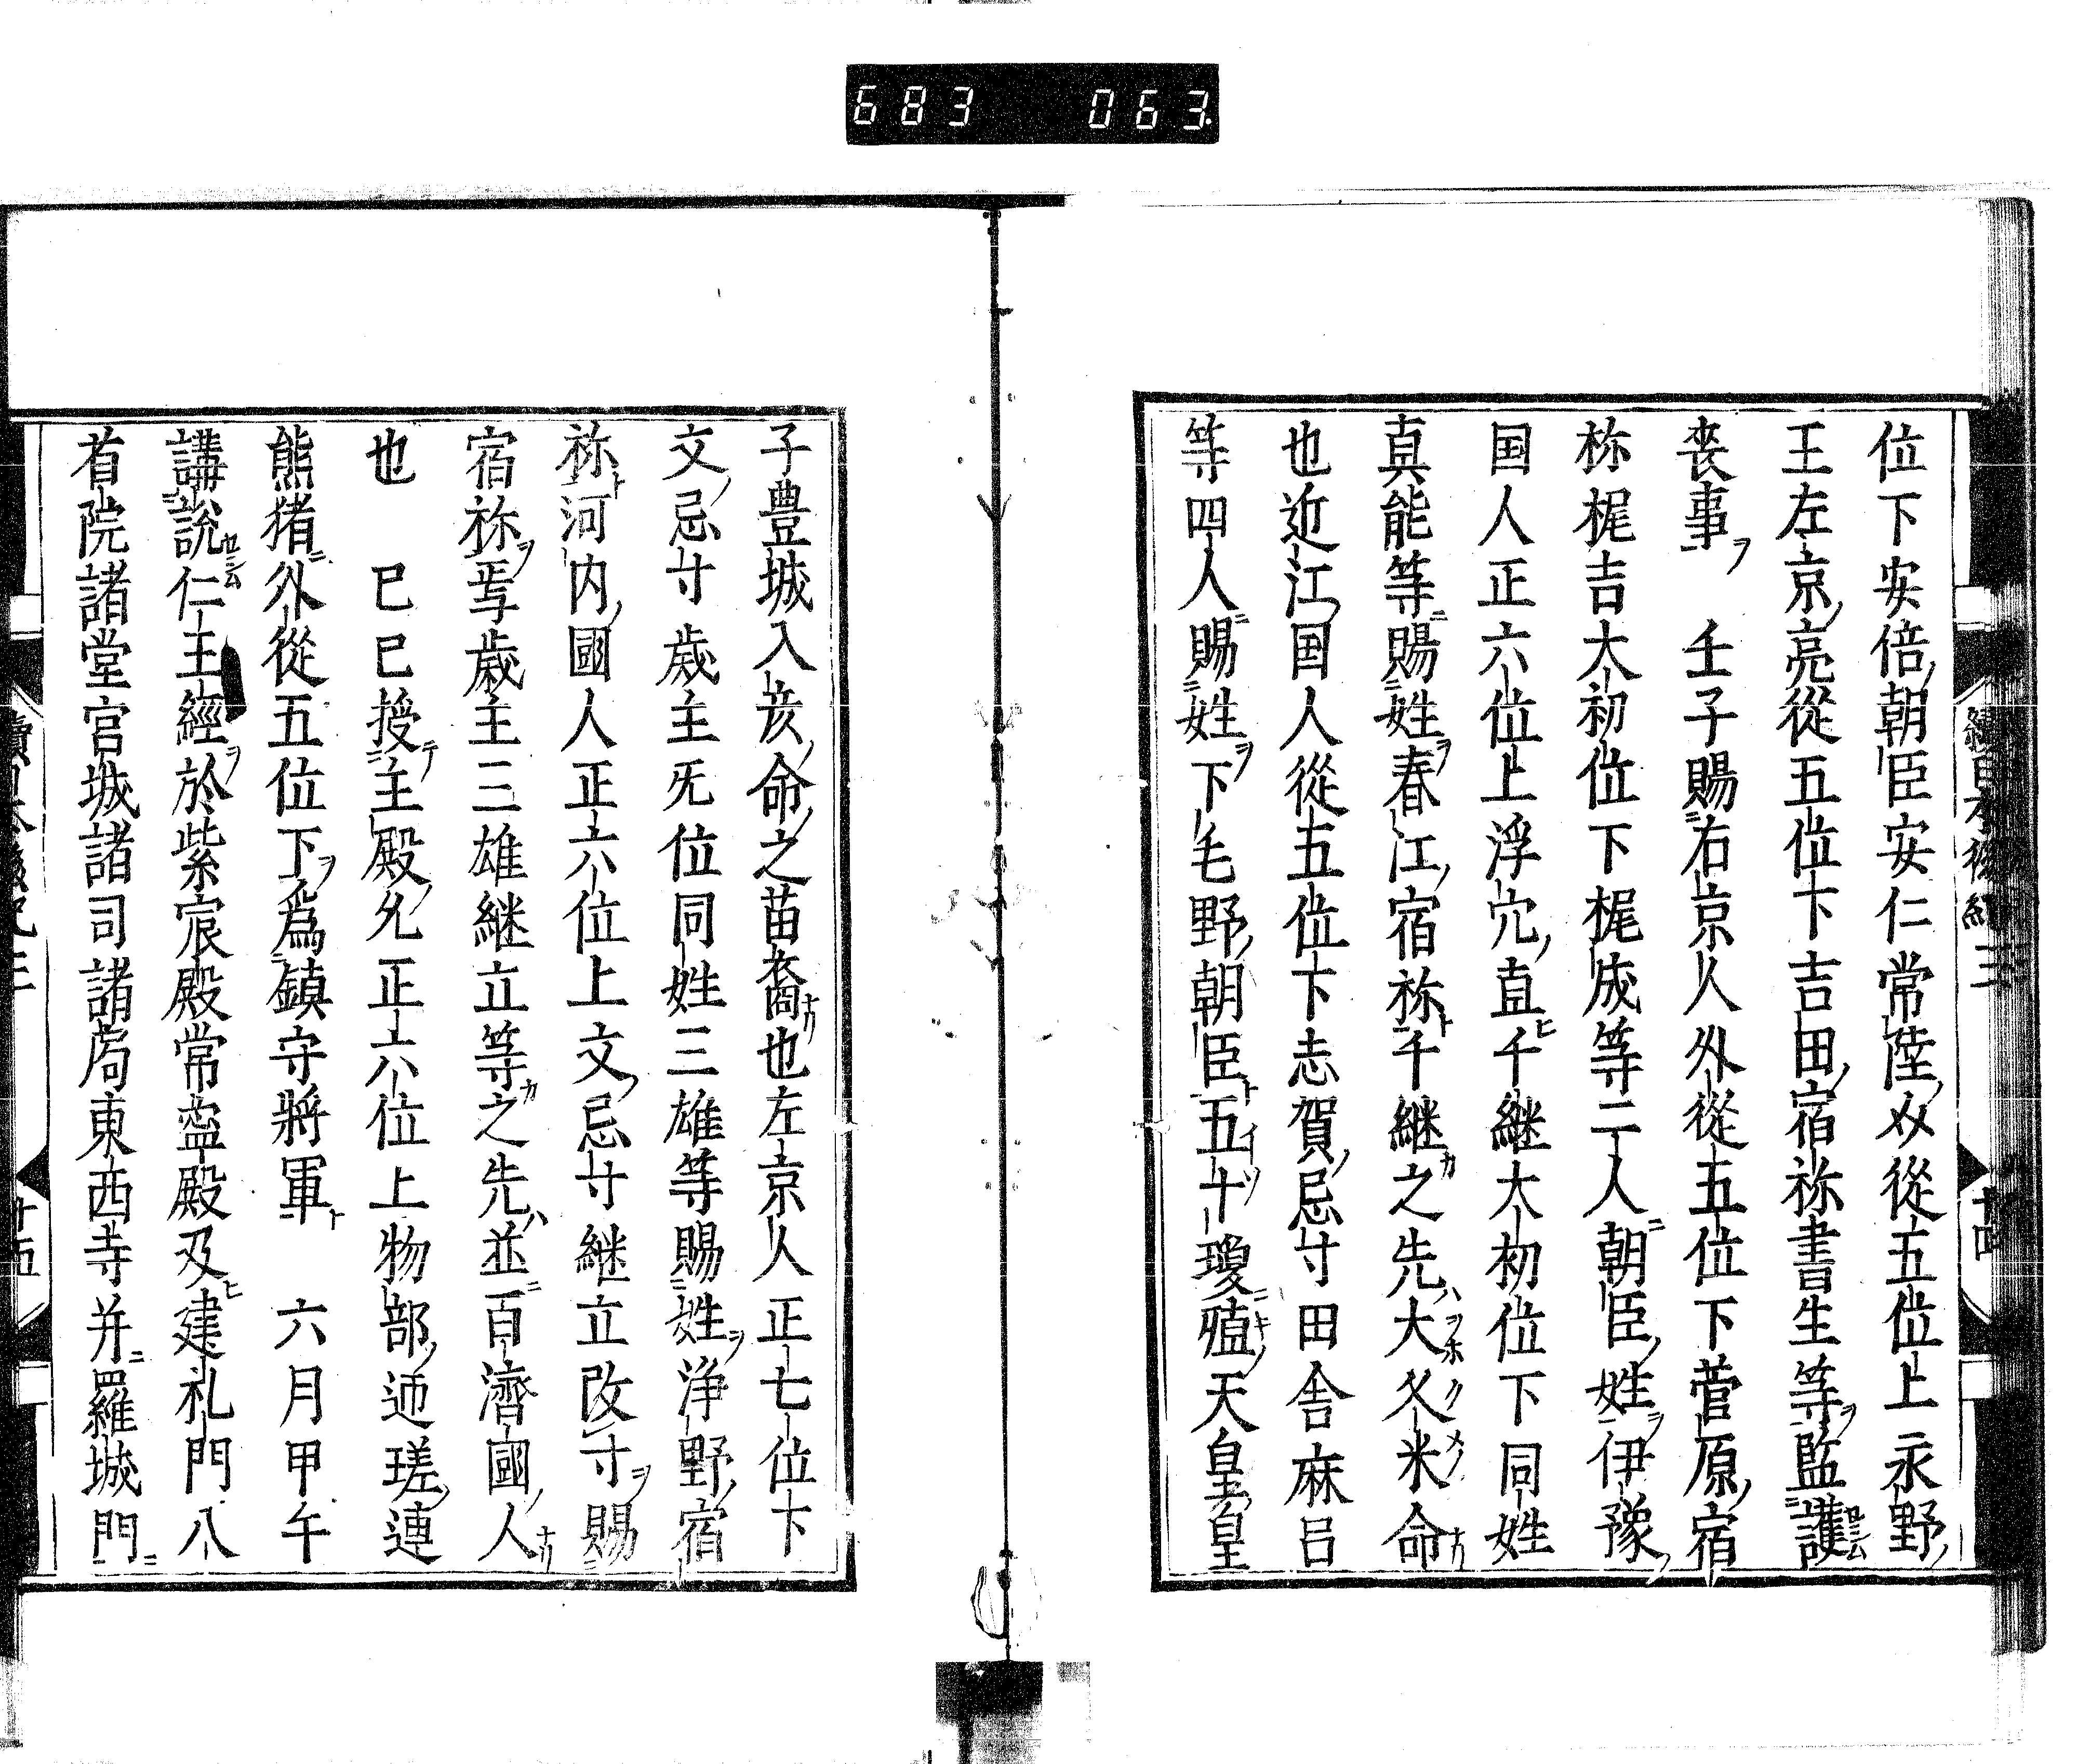 683 063
續日本後紀三
十四
位下安倍朝臣安仁常陸㕝從五位上永野
王左京亮從五位下吉田宿祢書生等監護
喪事 壬子賜右京人外從五位下菅原宿
祢梶吉大初位下梶成等二人朝臣姓伊豫
国人正六位上浮穴直千継大初位下同姓
真能等賜姓春江宿祢千継之先大久米命
也近江国人從五位下志賀忌寸田舎麻呂
等四人賜姓下毛野朝臣五十瓊殖天皇皇
子豊城入彦命之苗裔也左京人正七位下
文忌寸歳主旡位同姓三雄等賜姓浄野宿
祢河内國人正六位上文忌寸継立改寸賜
宿祢焉歳主三雄継立等之先並百濟國人
也 巳巳授主殿允正六位上物部迊瑳連
熊猪外從五位下為鎮守將軍 六月甲午
講說仁王經於紫宸殿常寧殿及建礼門八
省院諸堂宮城諸司諸局東西寺并羅城門
十五